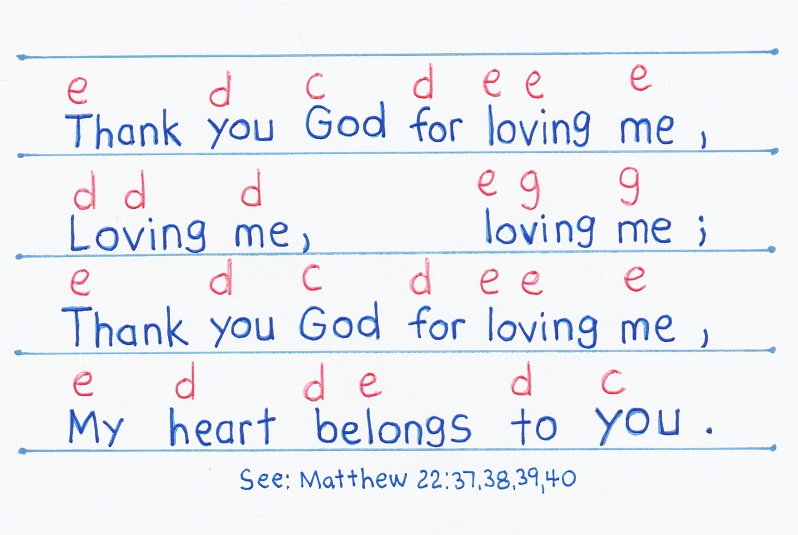 e d c d e e e
Thank you God for loving me ,
d d d e g g
Loving me, loving me ;
e d c d e e e
Thank you God for loving me ,
e d d e d c
My heart belongs to you .
See: Matthew 22:37,38,39,40